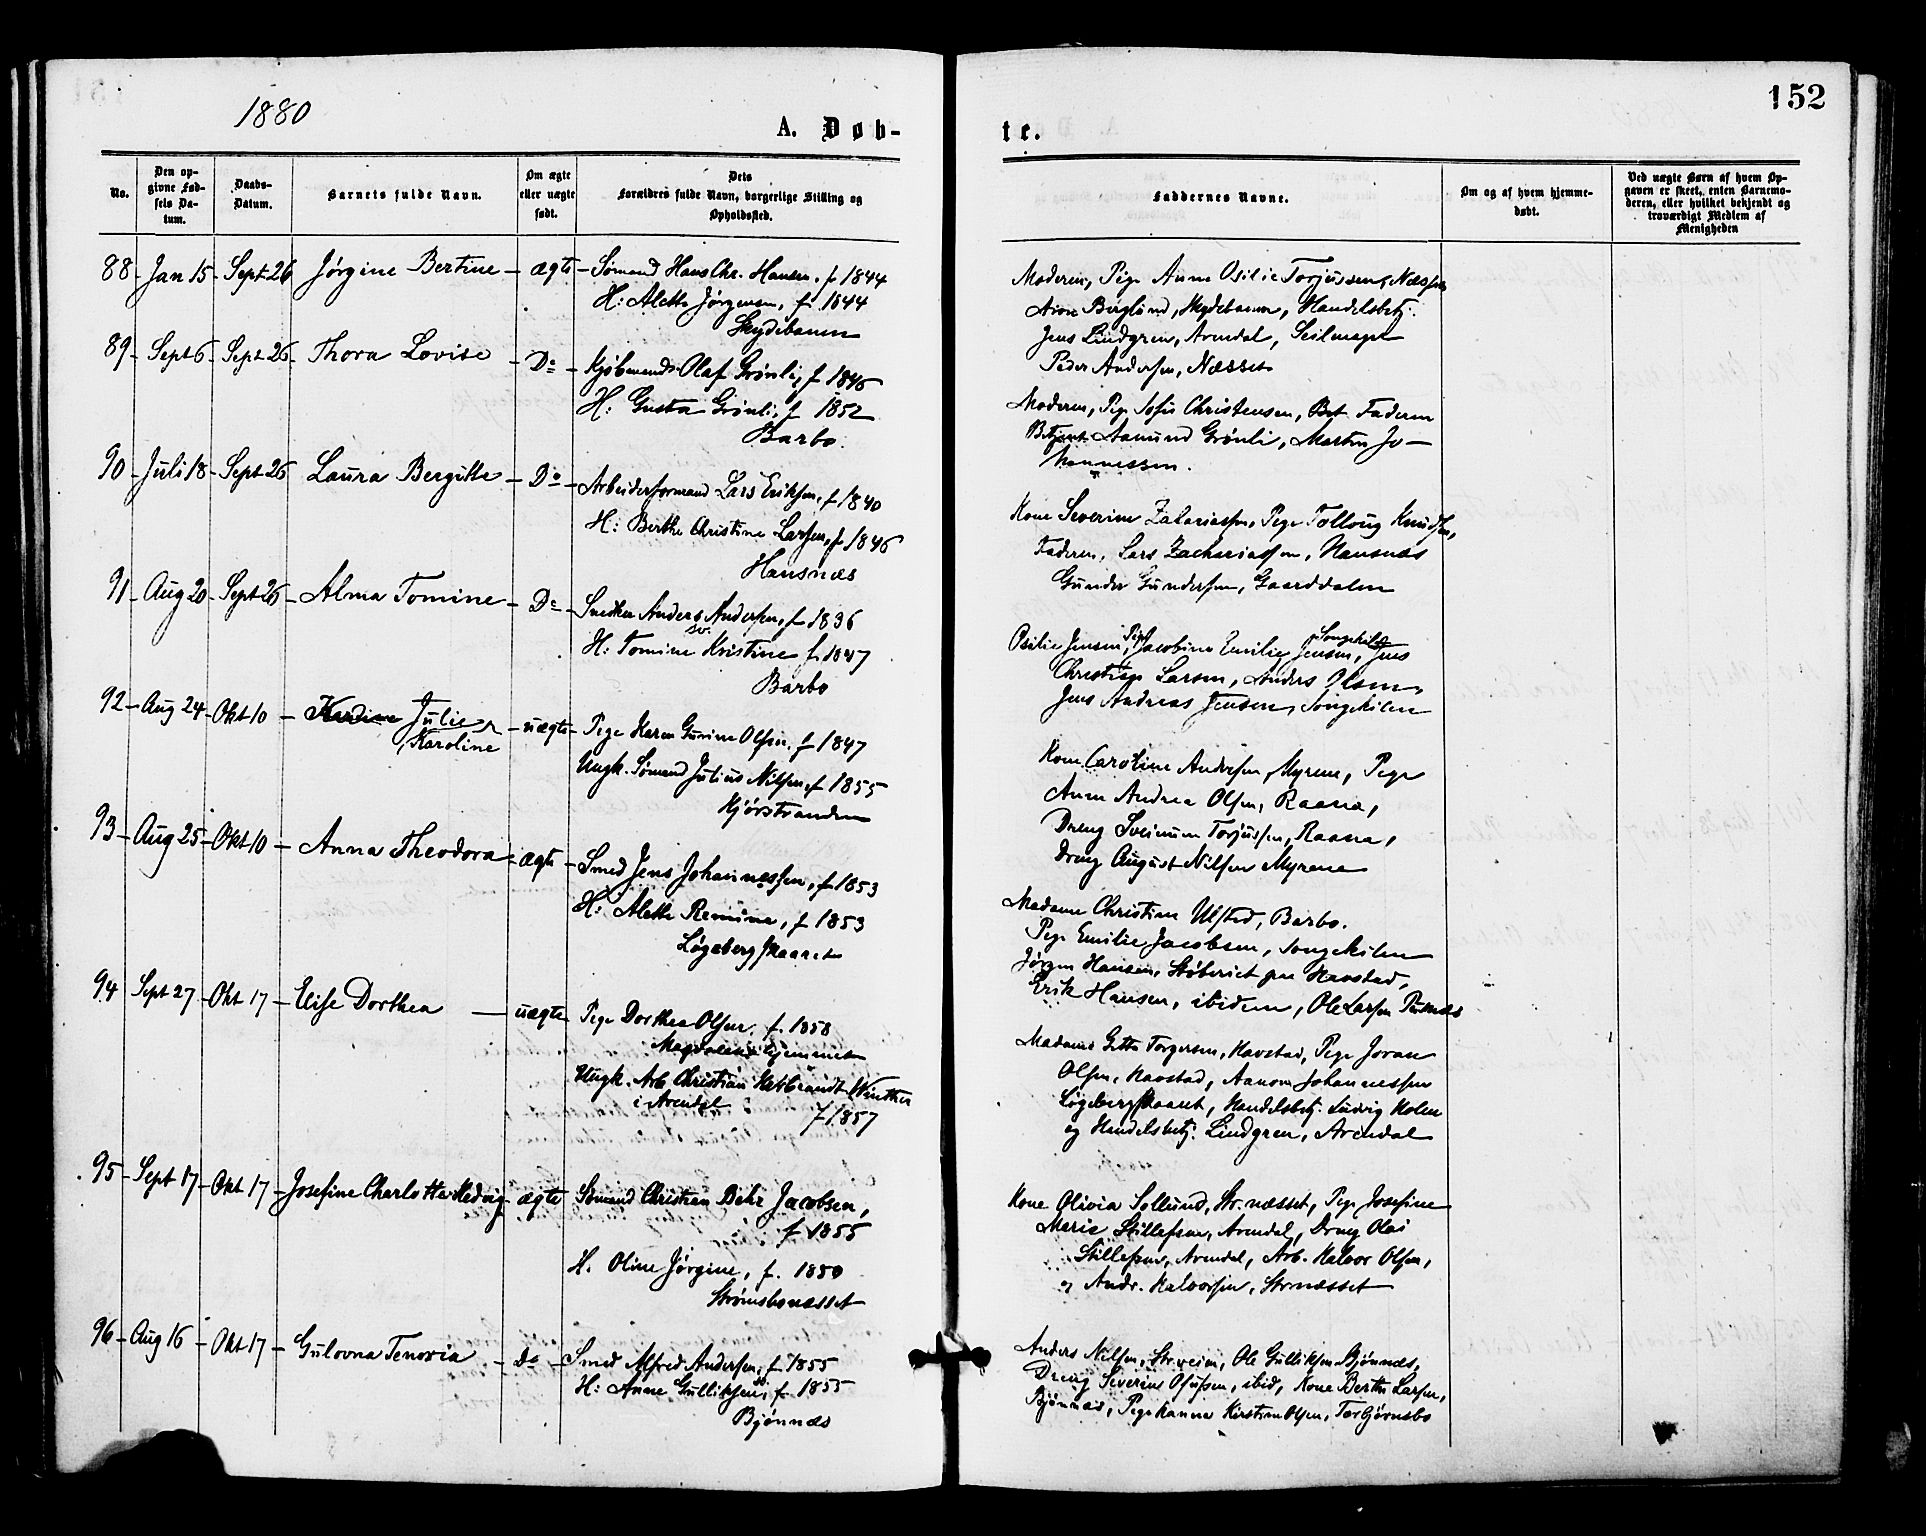 1880
152
A. Døb-
te.
No.
Den op-
givne Fød-
sels Da-
tum.
Daabs-
Datum.
Barnets fulde Navn.
Om ægte
eller uægte
født.
Dets
Forældres fulde Navn, borgerlige Stilling og
Opholdssted.
Faddernes Navne.
Om og af hvem hjemme-
døbt.
Ved uægte Børn af hvem Op-
gaven er skeet, enten Barnemo-
deren, eller hvilket bekjendt og
troværdigt Medlem af
Menigheden
88 - Jan 15 - Sept 26 Jørgine Bertine - ægte - Sømand Hans Chr. Hansen. f 1844
H: Alette Jørgensen, f 1844
Skydebanen
Moderen, Pige Anne Osilie Torjussen, Næsset
Berglund, Skydebanen, Handelsbetj.
Jens Lindgren, Arendal, Seilmager
Peder Andersen, Næsset
89 - Sept 6 - Sept 26 - Thora Lovise - Do - Kjøbmand Olaf Grønli, f 1846
H: Gusta Grønli, f 1852
Barbo.
Moderen, Pige Sofie Christensen, Faderen
Betjent Aamund Grønli, Martin Jo-
hannessen.
90 - Juli 18 - Sept 26 Laura Bergitte - Do - Arbeidsformand Lars Eriksen, f 1840
H: Berthe Christine Larsen, f 1846
Hansnæs
Kone Severine Zakariassen, Pige Tolloug Knudsen,
Faderen, Lars Zachariassen, Hansnæs
Gunder Gundersen, Gaarddalen
91 - Aug 20 - Sept 26 - Alma Tomine - Do - Snedker Anders Andersen, f 1836
H: Tomine Kristine f 1847
Barbo
Osilie Jensen, Pige Jacobine Emilie Jensen, Songekilen, Jens
Larsen, Anders Olsen,
Jens Andreas Jensen, Songekilen
92 - Aug 24 - Okt 10 - Kardine Julie
Karoline - uægte - Pige Karen Gurine Olsen, f 1847
Ungk. Sømand Julius Nilsen, f 1855
Kjørstranden
Kone Caroline Andersen, Myrene, Pige
Anne Andrea Olsen, Raana,
Dreng Torjussen, Raana,
Dreng August Nilsen Myrene
93 - Aug 25 - Okt 10 - Anna Theodora - ægte - Smed Jens Johannessen, f 1853
H: Alette f 1853
Løgebergskaaret
Madame Christine Ulsted, Barbo.
Pige Emilie Jacobsen, Songekilen
Jørgen Hansen, Støberiet paa Havstad,
Erik Hansen, ibidem, Ole Larsen
94 - Sept 27 - Okt 17 - Elise Dorthea - uægte - Pige Dorthea Olsen. f. 1858
Magdalenehjemmet
Ungk. Arb. Christian Winther
i Arendal
f 1857
Madame Gitte Torgersen, Havstad, Pige Joran
Olsen, Havstad, Aanon Johannessen
Løgebergskaaret, Handelsbetj. Ludvig Holm
og Handelsbetj. Lindgren, Arendal
95 - Sept 17 - Okt 17 - Josefine Charlotte Hedvig - ægte - Sømand Christian Behr Jacobsen,
f 1855
H. Oline Jørgine, f. 1850
Strømsbonæsset
Kone Olivia Sollund, Str. næsset, Pige Josefine
Marie Stillefsen, Arendal, Dreng Olai
Stillefsen, Arendal, Arb. Halvor Olsen,
og Andr. Halvorsen, Strnæsset
96 - Aug 16 - Okt 17 - Gulovna Tenoria - Do - Smed Alfred Andersen, f 1855
H: Anne Gulliksen, f. 1855
Bjønnæs
Anders Nilsen, Strveien, Ole Gulliksen Bjønnæs,
Dreng Severin Olufsen, ibid, Kone Berthe Larsen,
Bjønnæs, Pige Hanna Kirstine Olsen,